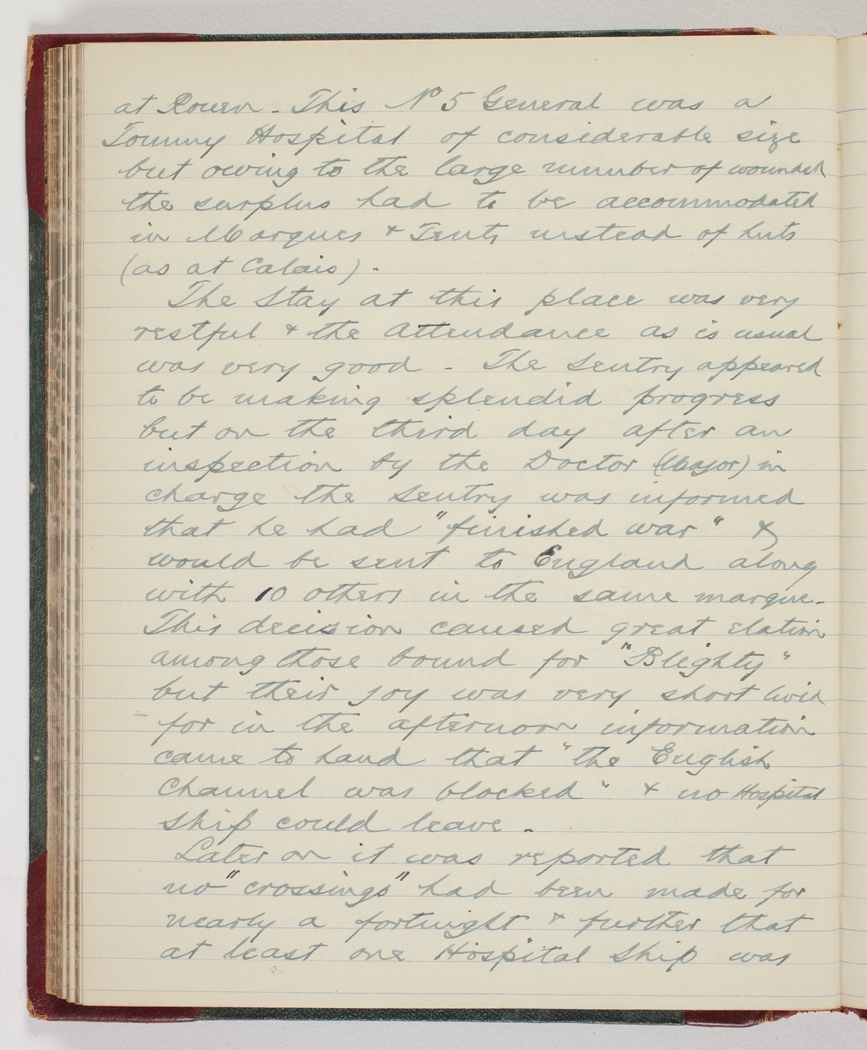 at Rouen - This No 5 General was a
Tommy Hospital of considerable size
but owing to the large number of wounded
the surplus had to be accommodated
in Marques & Tents instead of huts
(as at Calais) -
The Stay at this place was very
restful & the attendance as is usual
was very good - The Sentry appeared
to be making splendid progress
but on the third day after an
inspection by the Doctor (Major) in
charge the Sentry was informed
that he had "finished war" &
would be sent to England along
with 10 others in the same marque -
This decision caused great elation
among those bound for "Blighty"
but their joy was very short lived
for in the afternoon information
came to hand that "the English
Channel was blocked" & no Hospital
Ship could leave -
Later on it was reported that
no "crossings" had been made for
nearly a fortnight & further that
at least one Hospital Ship was